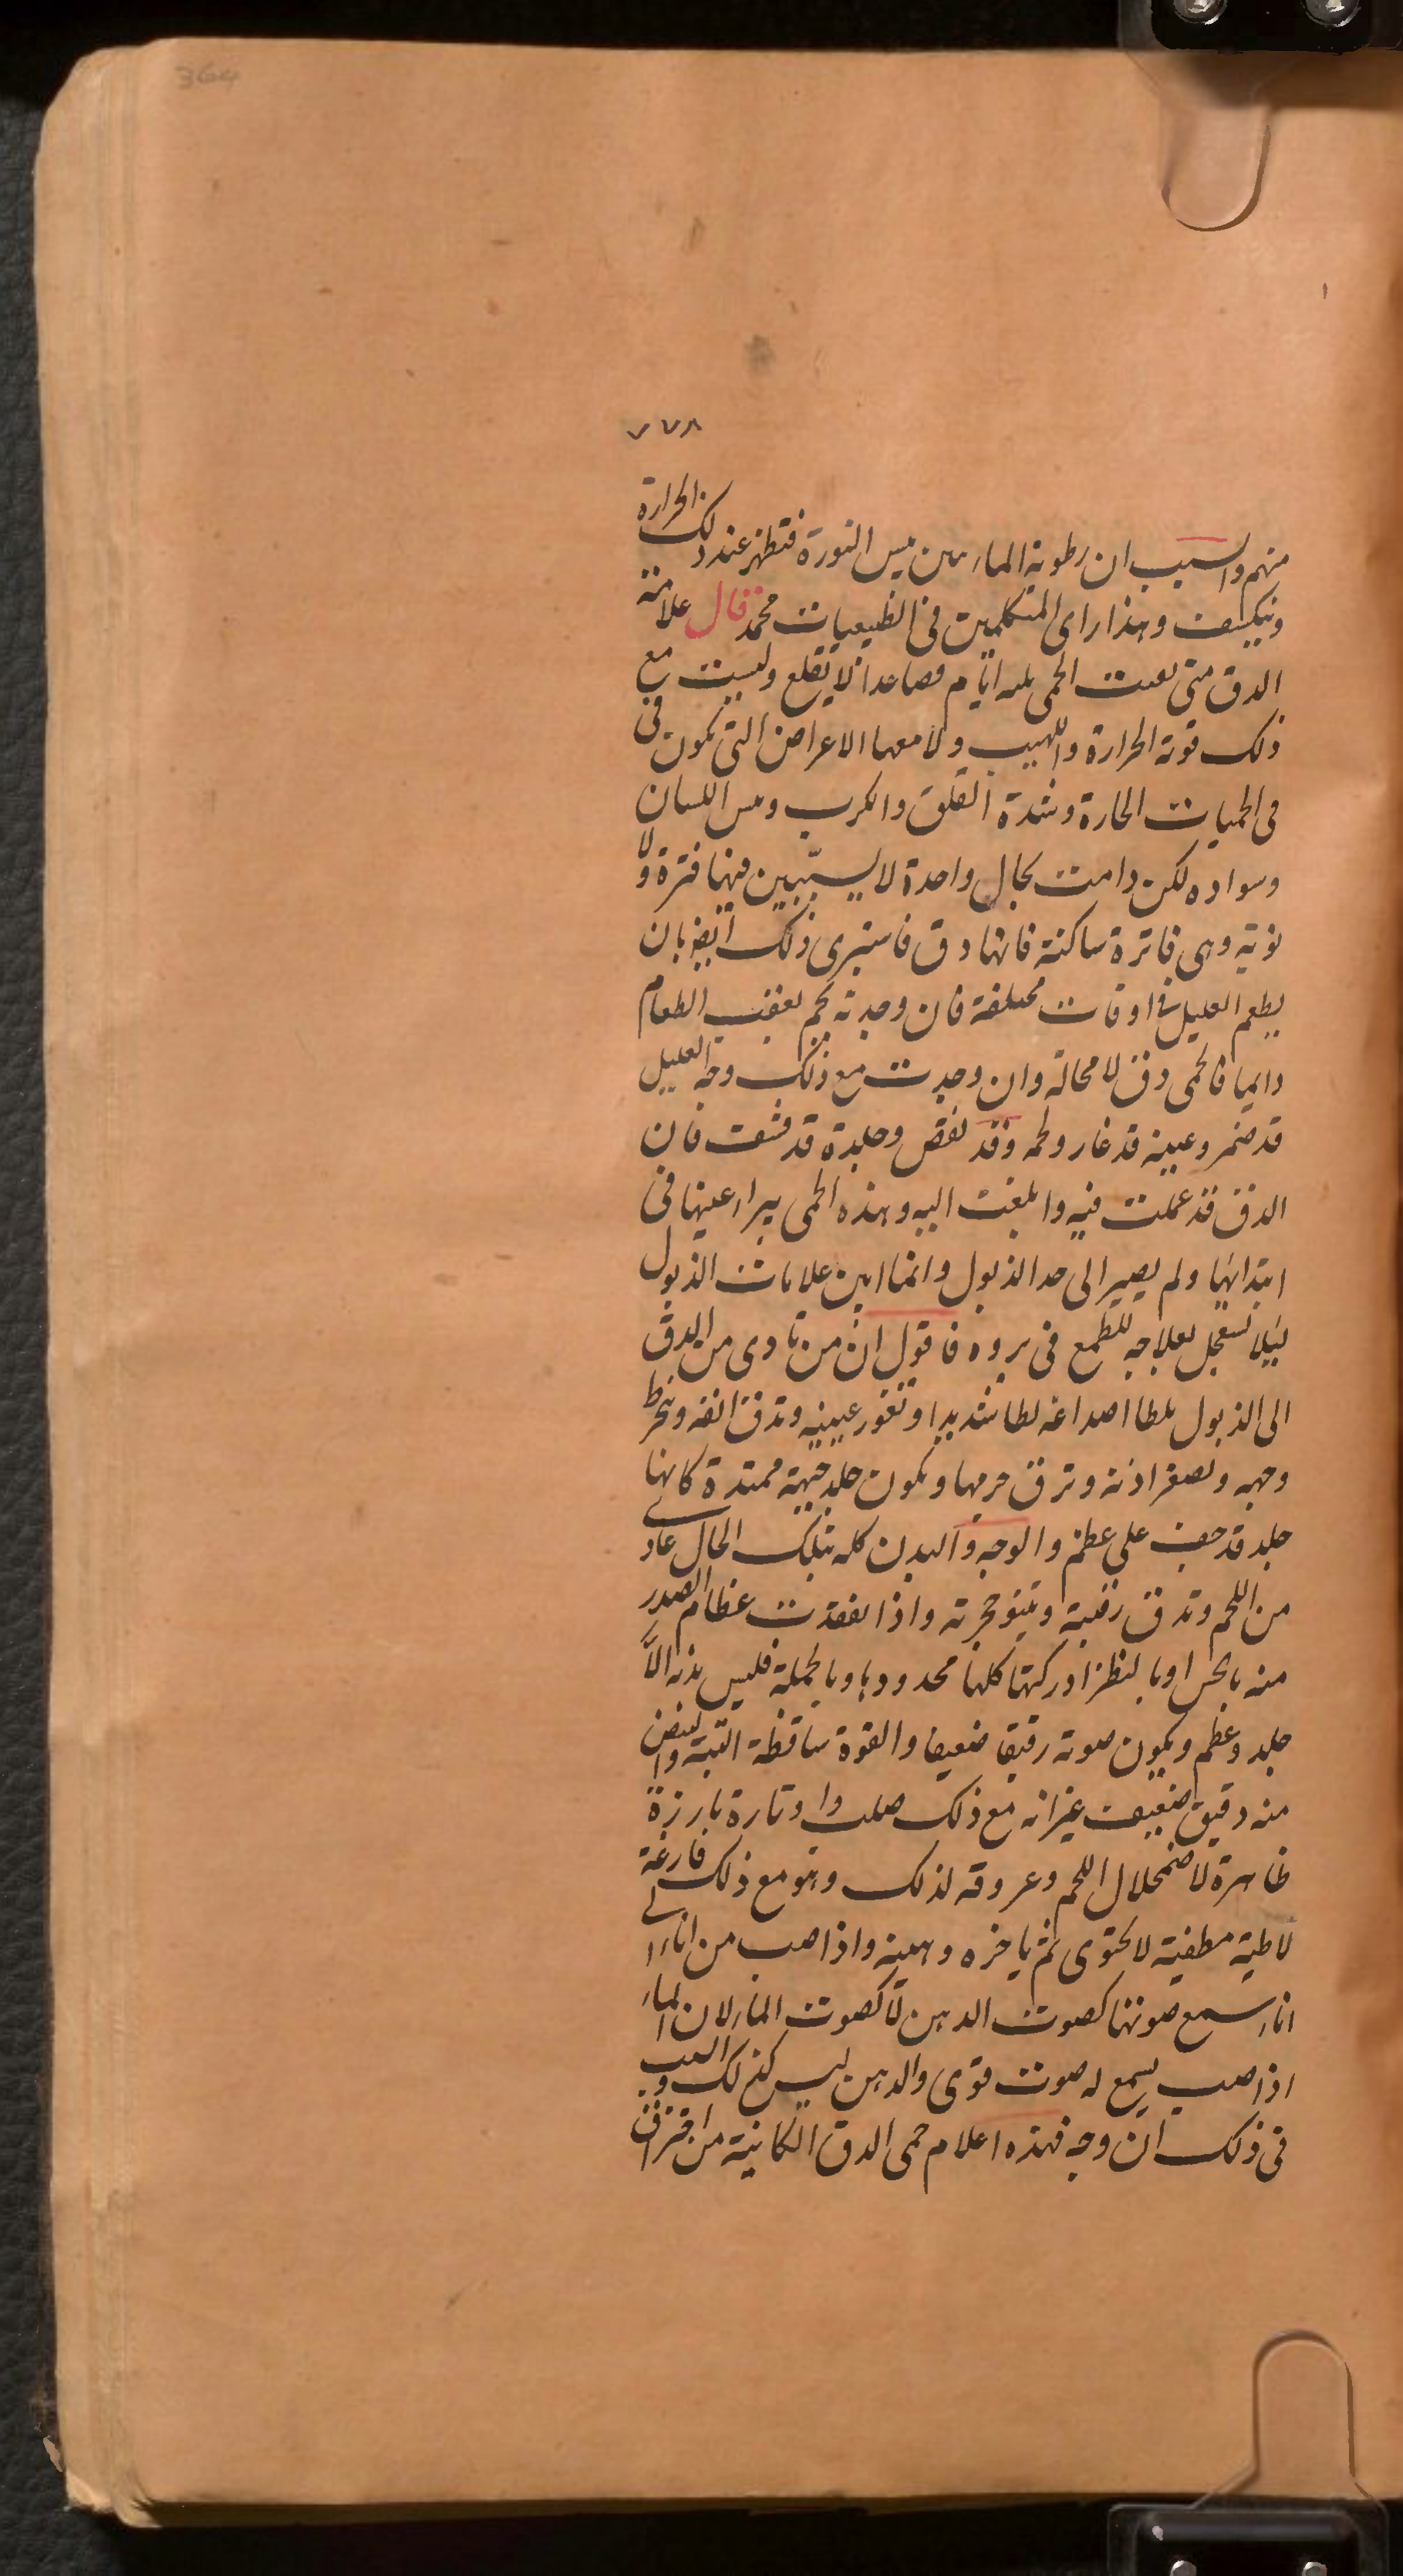 364
٧٧٨
منهم والسبب ان رطوبة الماء يبس النورة فتظهر عند ذلك الحرارة
وينكشف وهذا راى المتكلمين فى الطبيعيات محمد قال علامة
الدق متى الحمى ايام فصاعدا لا يقلع وليست مع
ذلك قوية الحرارة واللهيب ولا معها الاعراض التى تكون فى
فى الحميات الحارة وشدة القلق والكرب ويبس اللسان
وسواده لكن دامت بحال واحدة لا يستبين فيها فترة ولا
نوبة وهى فاترة ساكنة فانها دق فاستبرى ذلك ايضا بان
يطعم العليل فى اوقات مختلفة فان وجدته يحم بعقب الطعام
دايما فالحمى دق لا محالة وان وجدت مع ذلك وجه العليل
قد ضمر وعينه قد غار ولحمه وقد نقص وجلده قد قشفت فان
الدق قد عملت فيه وابلغت اليه وهذه الحمى يبرا عينها فى
ابتدائها ولم يصير الى حد الذبول وانما ابين علامات الذبول
ليلا تعجل بعلاجه للطمع فى بروه فاقول ان من تادى من الدق
الى الذبول يلطا اصداغه لطا شديدا وتغور عينيه وتدق انفه وينخرط
وجهه وتصغر اذنه وترق جرمها ويكون جلد جبهة ممتدة كانها
جلد قد جف على عظم والوجه والبدن كله بتلك الحال عارى
من اللحم وتدق رقبته وينتو حنجرته واذا تفقدت عظام الصدر
منه بالجس او بالنظر ادركتها كلها محدودبا وبالجملة فليس بدنه الا
جلد وعظم ويكون صوته رقيقا ضعيفا والقوة ساقطة البتة والنبض
منه دقيق ضعيف غير انه مع ذلك صلب واوتارة بارزة
ظاهرة لاضمحلال اللحم وعروقه لذلك وهو مع ذلك فارغة
لاطية مطفية لا يحتوى ثم ياخذه وهينه واذا صب من اناء الى
اناء سمع صوتها كصوت الدهن لا كصوت الماء لان الماء
اذا صب يسمع له صوت قوى والدهن ليس كذلك
فى ذلك ان وجه فهذه اعلام حمى الدق الكاينة من احتراق